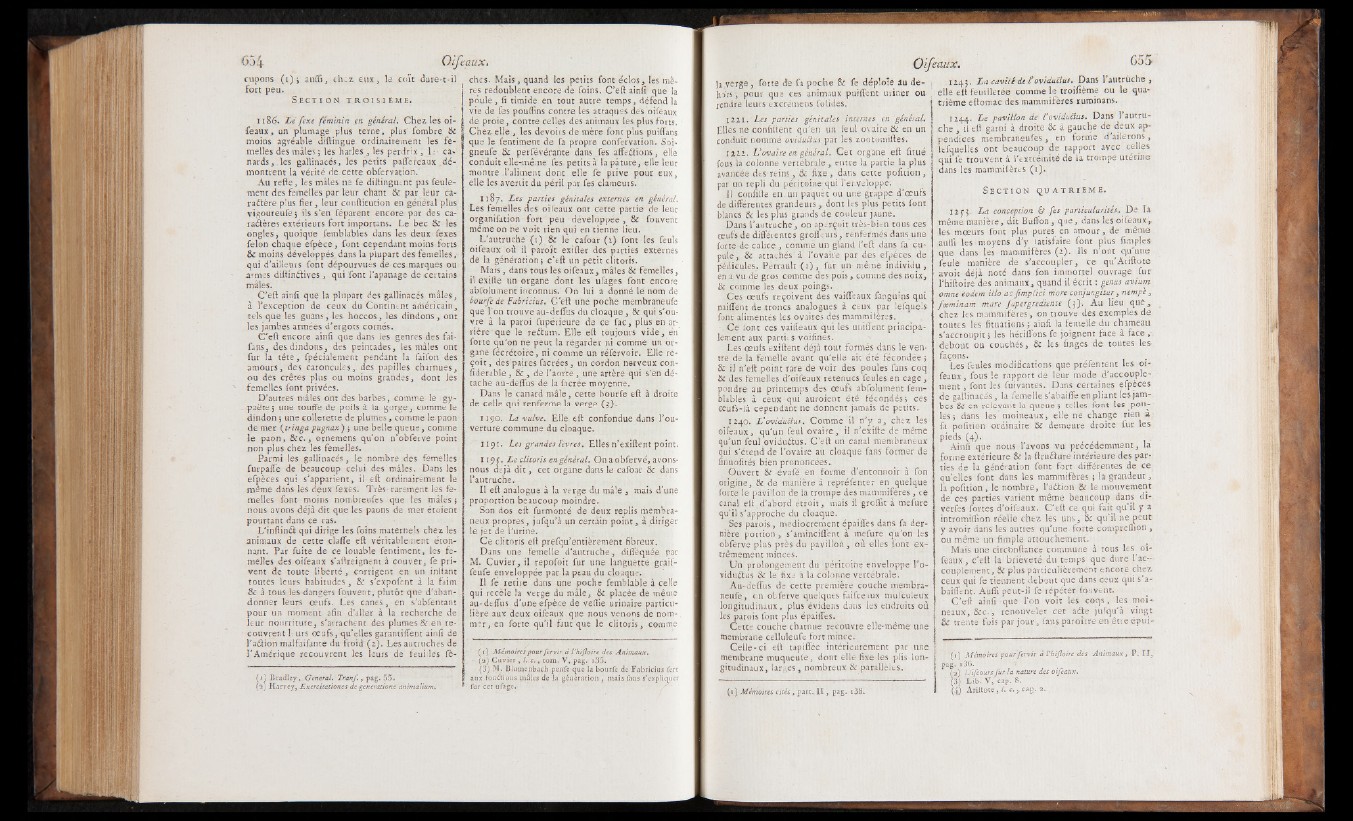 654 Oiseaux.
cupons (1); aussi, chez eux, le coït dure-t-il
fort peu.
SECTION TROISIEME.
1186. Le sexe féminin en général. Chez les oi-
seaux, un plumage plus terne, plus sombre &
moins agréable distingue ordinairement les fe-
melles des mâles; les harles, les perdrix, les ca-
nards, les gallinacés, les petits passereaux dé-
montrent la vérité de cette observation.
Au reste, les mâles ne se distinguent pas seule-
ment des femelles par leur chant & par leur ca-
ractère plus fier, leur constitution en général plus
vigoureuse; ils s'en séparent encore par des ca-
ractères extérieurs fort importans. Le bec & les
ongles, quoique semblables dans les deux sexes
selon chaque espèce, sont cependant moins forts
& moins développés dans la plupart des femelles,
qui d'ailleurs sont dépourvues de ces marques ou
armes distinctives, qui font l'apanage de certains
mâles.
C'est ainsi que la plupart des gallinacés mâles,
à l'exception de ceux du Continent américain,
tels que les guans, les hoccos, les dindons, ont
les jambes armées d'ergots cornés.
C'est encore ainsi que dans les genres des fai-
sans, des dindons, des peintades, les mâles ont
sur la tête, spécialement pendant la saison des
amours, des caroncules, des papilles charnues,
ou des crêtes plus ou moins grandes, dont les
femelles sont privées.
D'autres mâles ont des barbes, comme le gy-
paëte; une touffe de poils à la gorge, comme le
dindon; une collerette de plumes, comme le paon
de mer (tringa pugnax); une belle queue, comme
le paon, &c., ornemens qu'on n'observe point
non plus chez les femelles.
Parmi les gallinacés, le nombre des femelles
surpasse de beaucoup celui des mâles. Dans les
espèces qui s'apparient, il est ordinairement le
même dans les deux sexes. Très-rarement les fe-
melles sont moins nombreuses que les mâles;
nous avons déjà dit que les paons de mer étoient
pourtant dans ce cas.
L'instinct qui dirige les soins maternels chez les
animaux de cette classe est véritablement éton-
nant. Par suite de ce louable sentiment, les fe-
melles des oiseaux s'astreignent à couver, se pri-
vent de toute liberté, corrigent en un instant
toutes leurs habitudes, & s'exposent à la faim
& à tous les dangers souvent, plutôt que d'aban-
donner leurs œufs. Les canes, en s'absentant
pour un moment afin d'aller à la recherche de
leur nourriture, s'arrachent des plumes & en re-
couvrent leurs œufs, qu'elles garantissent ainsi de
l'action malfaisante du froid (2). Les autruches de
l'Amérique recouvrent les leurs de feuilles sè-
(1) Bradley, General. Trans., pag. 55.
(2) Harvey, Exercitationes de generatione animalium.
ches. Mais, quand les petits sont éclos, les mè-
res redoublent encore de soins. C'est ainsi que la
poule, si timide en tout autre temps, défend la
vie de ses poussins contre les attaques des oiseaux
de proie, contre celles des animaux les plus forts.
Chez elle, les devoirs de mère sont plus puissans
que le sentiment de sa propre conservation. Soi-
gneuse & persévérante dans ses affections, elle
conduit elle-même ses petits à la pâture, elle leur
montre l'aliment dont elle se prive pour eux,
elle les avertit du péril par ses clameurs.
1187. Les parties génitales externes en général.
Les femelles des oiseaux ont cette partie de leur
organisation fort peu développée, & souvent
même on ne voit rien qui en tienne lieu.
L'autruche (1) & le casoar (2) sont les seuls
oiseaux où il paroît exister des parties externes
de la génération; c'est un petit clitoris.
Mais, dans tous les oiseaux, mâles & femelles,
il existe un organe dont les usages sont encore
absolument inconnus. On lui a donné le nom de
bourse de Fabricius. C'est une poche membraneuse
que l'on trouve au-dessus du cloaque, & qui s'ou-
vre à la paroi supérieure de ce sac, plus en ar-
rière que le rectum. Elle est toujours vide, en
sorte qu'on ne peut la regarder ni comme un or-
gane secrétoire, ni comme un réservoir. Elle re-
çoit, des paires sacrées, un cordon nerveux con-
sidérable, &, de l'aorte, une artère qui s'en dé-
tache au-dessus de la sacrée moyenne.
Dans le canard mâle, cette bourse est à droite
de celle qui renferme la verge (3).
1190. La vulve. Elle est confondue dans l'ou-
verture commune du cloaque.
1191. Les grandes lèvres. Elles n'existent point.
1195. Le clitoris en général. On a observé, avons-
nous déjà dit, cet organe dans le casoar & dans
l'autruche.
Il est analogue à la verge du mâle, mais d'une
proportion beaucoup moindre.
Son dos est surmonté de deux replis membra-
neux propres, jusqu'à un certain point, à diriger
le jet de l'urine.
Ce clitoris est presqu'entièrement fibreux.
Dans une femelle d'autruche, disséquée par
M. Cuvier, il reposoit sur une languette grais-
seuse enveloppée par la peau du cloaque.
Il se retire dans une poche semblable à celle
qui recèle la verge du mâle, & placée de même
au-dessus d'une espèce de vessie urinaire particu-
lière aux deux oiseaux que nous venons de nom-
mer, en sorte qu'il faut que le clitoris, comme
(1) Mémoires pour servir à l'histoire des Animaux.
(2) Cuvier, l. c., tom. V, pag. 135.
(3) M. Blumenbach pense que la bourse de Fabricius sert
aux fonctions mâles de la génération, mais sans s'expliquer
sur cet usage.
Oiseaux. 655
la verge, sorte de sa poche & se déploie au de-
hors, pour que ces animaux puissent uriner ou
rendre leurs excrémens solides.
1221. Les parties génitales internes en général.
Elles ne consistent qu'en un seul ovaire & en un
conduit nommé oviductus par les zootomistes.
1222. L'ovaire en général. Cet organe est situé
sous la colonne vertébrale, entre la partie la plus
avancée des reins, & fixe, dans cette position,
par un repli du péritoine qui l'enveloppe.
Il consiste en un paquet ou une grappe d'œufs
de différentes grandeurs, dont les plus petits sont
blancs & les plus grands de couleur jaune.
Dans l'autruche, on aperçoit très-bien tous ces
œufs de différentes grosseurs, renfermés dans une
sorte de calice, comme un gland l'est dans sa cu-
pule, & attachés à l'ovaire par des espèces de
pédicules. Perrault (1), sur un même individu,
en a vu de gros comme des pois, comme des noix,
& comme les deux poings.
Ces œufs reçoivent des vaisseaux sanguins qui
naissent de troncs analogues à ceux par lesquels
sont alimentés les ovaires des mammifères.
Ce sont ces vaisseaux qui les unissent principa-
lement aux parties voisines.
Les œufs existent déjà tout formés dans le ven-
tre de la femelle avant qu'elle ait été fécondée;
& il n'est point rare de voir des poules sans coq
& des femelles d'oiseaux retenues seules en cage,
pondre au printemps des œufs absolument sem-
blables à ceux qui auroient été fécondés; ces
œufs-là cependant ne donnent jamais de petits.
1240. L'oviductus. Comme il n'y a, chez les
oiseaux, qu'un seul ovaire, il n'existe de même
qu'un seul oviductus. C'est un canal membraneux
qui s'étend de l'ovaire au cloaque sans former de
sinuosités bien prononcées.
Ouvert & évasé en forme d'entonnoir à son
origine, & de manière à représenter en quelque
sorte le pavillon de la trompe des mammifères, ce
canal est d'abord étroit, mais il grossit à mesure
qu'il s'approche du cloaque.
Ses parois, médiocrement épaisses dans sa der-
nière portion, s'amincissent à mesure qu'on les
observe plus près du pavillon, où elles sont ex-
trêmement minces.
Un prolongement du péritoine enveloppe l'o-
viductus & le fixe à la colonne vertébrale.
Au-dessus de cette première couche membra-
neuse, on observe quelques faisceaux musculeux
longitudinaux, plus évidens dans les endroits où
les parois sont plus épaisses.
Cette couche charnue recouvre elle-même une
membrane celluleuse fort mince.
Celle-ci est tapissée intérieurement par une
membrane muqueuse, dont elle fixe les plis lon-
gitudinaux, larges, nombreux & parallèles.
(1) Mémoires cités, part. II, pag. 138.
1243. La cavité de l'oviductus. Dans l'autruche,
elle est feuilletée comme le troisième ou le qua-
trième estomac des mammifères ruminans.
1244. Le pavillon de l'oviductus. Dans l'autru-
che, il est garni à droite & à gauche de deux ap-
pendices membraneuses, en forme d'ailerons,
lesquelles ont beaucoup de rapport avec celles
qui se trouvent à l'extrémité de la trompe utérine
dans les mammifères (1).
SECTION QUATRIEME.
1253. La conception & ses particularités. De la
même manière, dit Buffon, que, dans les oiseaux,
les mœurs sont plus pures en amour, de même
aussi les moyens d'y satisfaire sont plus simples
que dans les mammifères (2). Ils n'ont qu'une
seule manière de s'accoupler, ce qu'Aristote
avoit déjà noté dans son immortel ouvrage sur
l'histoire des animaux, quand il écrit: genus avium
omne eodem illo ac simplici more conjungitur, nempè,
fœminam mare supergrediente (3). Au lieu que,
chez les mammifères, on trouve des exemples de
toutes les situations; ainsi la femelle du chameau
s'accroupit; les hérissons se joignent face à face,
debout ou couchés, & les singes de toutes les
façons.
Les seules modifications que présentent les oi-
seaux, sous le rapport de leur mode d'accouple-
ment, sont les suivantes. Dans certaines espèces
de gallinacés, la femelle s'abaisse en pliant les jam-
bes & en relevant la queue; telles sont les pou-
les; dans les moineaux, elle ne change rien à
sa position ordinaire & demeure droite sur les
pieds (4).
Ainsi que nous l'avons vu précédemment, la
forme extérieure & la structure intérieure des par-
ties de la génération sont fort différentes de ce
qu'elles sont dans les mammifères; la grandeur,
la position, le nombre, l'action & le mouvement
de ces parties varient même beaucoup dans di-
verses sortes d'oiseaux. C'est ce qui fait qu'il y a
intromission réelle chez les uns, & qu'il ne peut
y avoir dans les autres qu'une forte compression,
ou même un simple attouchement.
Mais une circonstance commune à tous les oi-
seaux, c'est la brièveté du temps que dure l'ac-
couplement, & plus particulièrement encore chez
ceux qui se tiennent debout que dans ceux qui s'a-
baissent. Aussi peut-il se répéter souvent.
C'est ainsi que l'on voit les coqs, les moi-
neaux, &c., renouveler cet acte jusqu'à vingt
& trente fois par jour, sans paroître en être épui-
(1) Mémoires pour servir à l'histoire des Animaux, P. II,
pag. 136.
(2) Discours sur la nature des oiseaux.
(3) Lib. V, cap. 8.
(4) Aristote, l. c., cap. 2.